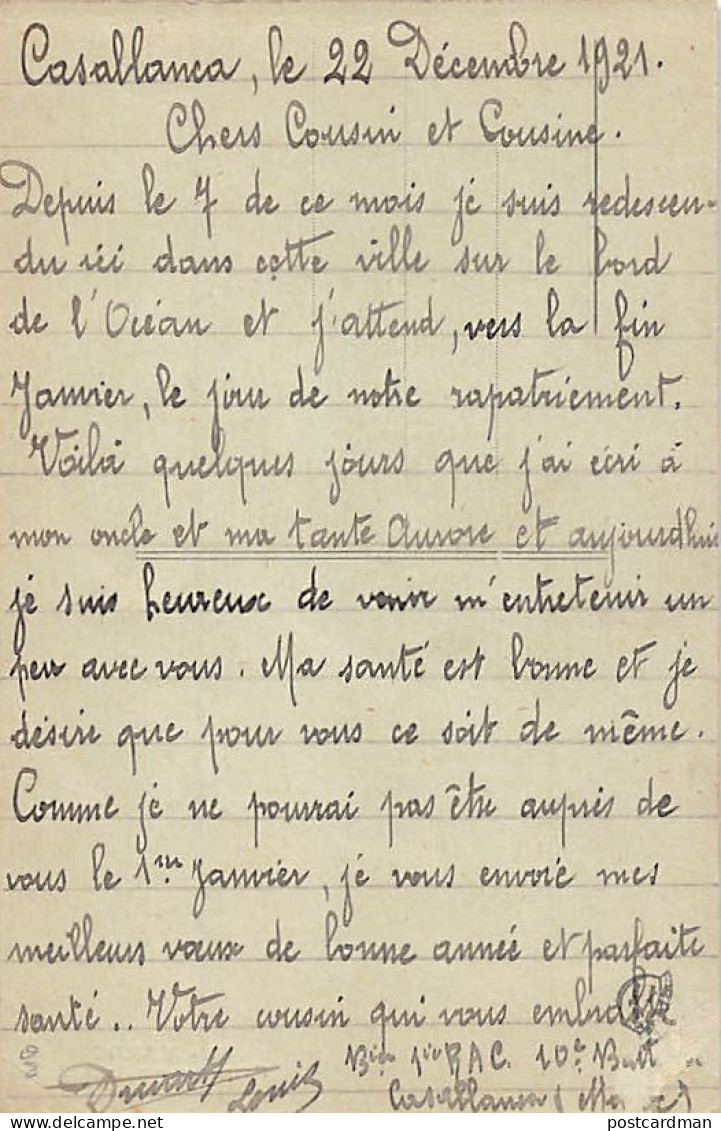 Casablanca, le 22 Décembre 1921.
Chers Cousin et Cousine.
Depuis le 7 de ce mois je suis redescen-
du ici dans cette ville sur le bord
de l'Océan et j'attend, vers la fin
Janvier, le jour de notre rapatriement.
Voilà quelques jours que j'ai écri à
mon oncle et ma tante Aurore et aujourd'hui
je suis heureux de venir m'entretenir un
peu avec vous. Ma santé est bonne et je
désire que pour vous ce soit de même.
Comme je ne pourrai pas être auprès de
vous le 1er Janvier, je vous envoie mes
meilleurs vœux de bonne année et parfaite
santé.. Votre cousin qui vous embrasse
1er R.A.C. 10e Batt
Louis Casablanca (Maroc)
postcardman